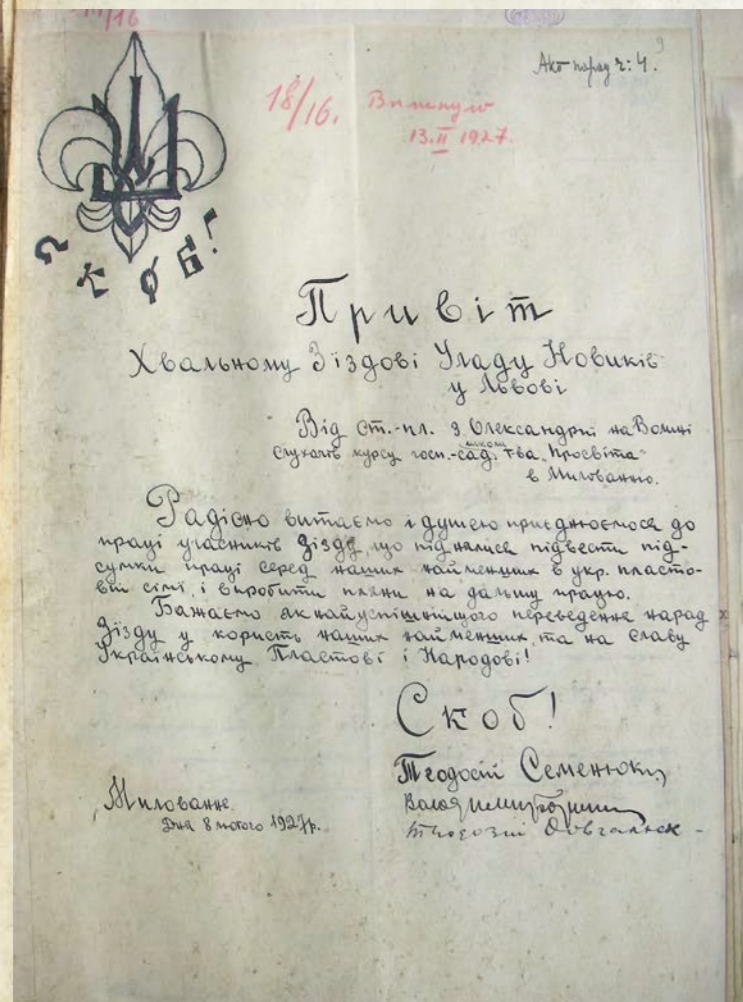 /16
9
Акт поряд ч: 4.
18/16. Вплинуло
13.II 1927.
СКОБ!
Привіт
Хвальному Зїздові Уладу Новиків
у Львові
Від ст.-пл. з Олександрії на Волині
слухачів курсу госп.-сад. школи т-ва „Просвіта"
в Милованню.
Радісно витаємо і душею приєднюємося до
праці учасників Зїзду, що піднялися підвести під-
сумки праці серед наших найменших в укр. пласто-
вій сімї, і виробити пляни на дальшу працю.
Бажаємо якнайуспішнішого переведення нарад
Зїзду у користь наших найменших, та на славу
Українському Пластові і Народові!
Скоб!
Теодосій Семенюк
Милованнє
Володимир
Дня 8 лютого 1927р.
Довгалюк